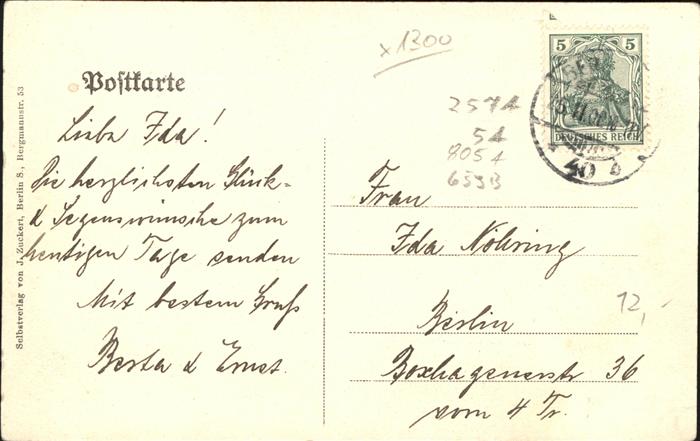 x1300
5 5
DEUTSCHES REICH
40 b
Postkarte
2574
54
8054
653B
Liebe Ida!
Die herzlichsten Glück-
& Segenswünsche zum
heutigen Tage senden
Mit bestem Gruß
Berta & Ernst.
Frau
Ida Nöhring
Berlin
Boxhagenerstr 36
vorn 4 Tr.
12,-
Selbstverlag von J. Zuckert, Berlin S., Bergmannstr. 53